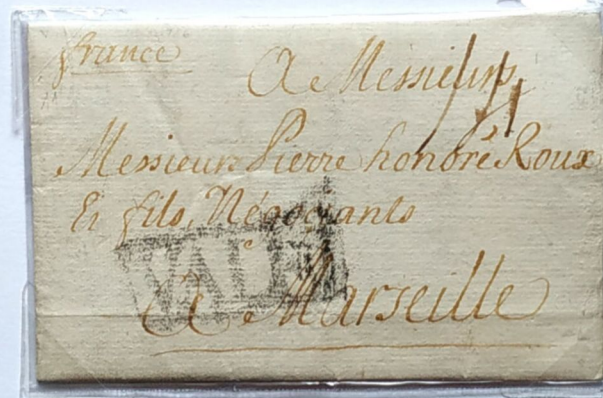 france
A Messieurs
Messieurs Pierre honoré Roux
Et fils, Négociants
a Marseille